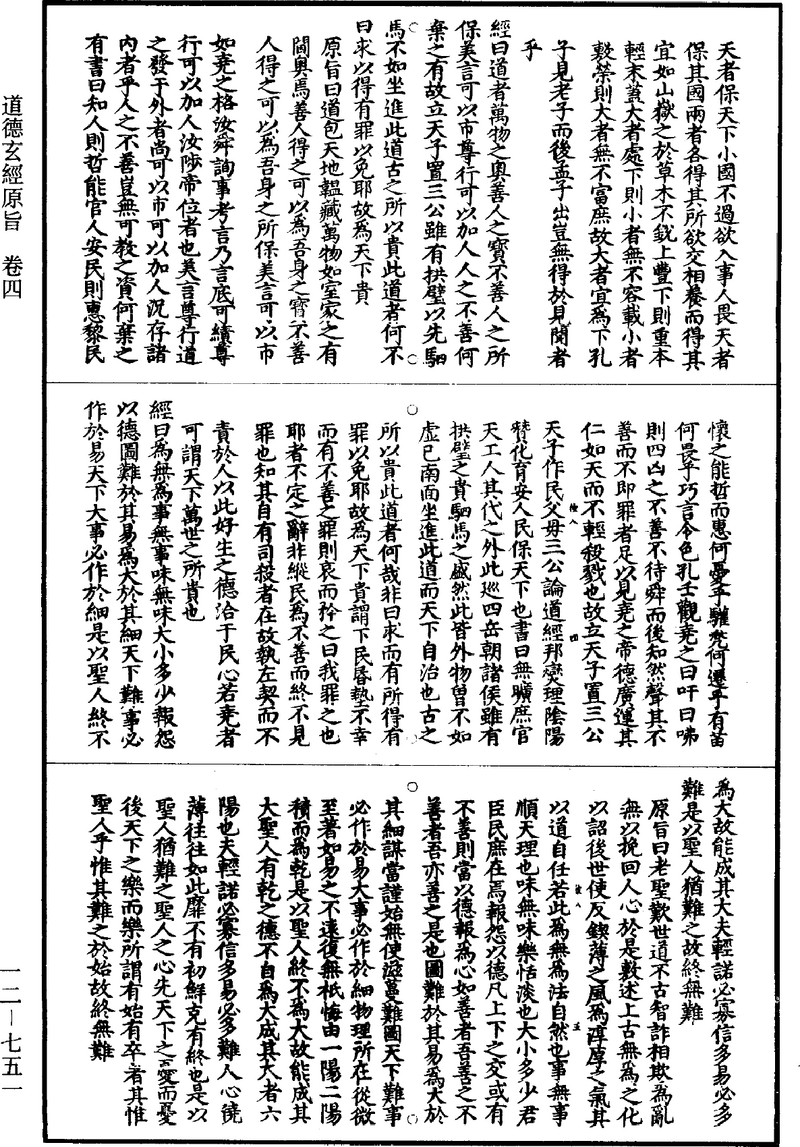 天者保天下小國不過欲入事人畏天者
保其國兩者各得其所欲交相養而得其
宜如山嶽之於草木不銳上豐下則重本
輕末蓋大者處下則小者無不容載小者
敷榮則大者無不富庶故大者宜為下孔
子見老子而後孟子出豈無得於見聞者
乎
經曰道者萬物之奧善人之寶不善人之所
保美言可以市尊行可以加人人之不善何
棄之有故立天子置三公雖有拱璧以先駟
馬不如坐進此道古之所以貴此道者何不
曰求以得有罪以免耶故為天下貴
原旨曰道包天地韞藏萬物如室家之有
閫奧焉善人得之可以為吾身之寶不善
人得之可以為吾身之所保美言可以市
如堯之格汝舜詢事考言乃言底可績尊
行可以加人汝陟帝位者也美言尊行道
之發于外者尚可以市可以加人況存諸
內者乎人之不善豈無可教之資何棄之
有書曰知人則哲能官人安民則惠黎民
懷之能哲而惠何憂乎驩兜何遷乎有苗
何畏乎巧言令色孔壬觀堯之曰吁曰咈
則四凶之不善不待舜而後知然聲其不
善而不即罪者足以見堯之帝德廣運其
仁如天而不輕殺戮也故立天子置三公
天子作民父母三公論道經邦燮理陰陽
贊化育安人民保天下也書曰無曠庶官
天工人其代之外此巡四岳朝諸侯雖有
拱璧之貴駟馬之盛然此皆外物曾不如
虛己南面坐進此道而天下自治也古之
所以貴此道者何哉非曰求而有所得有
罪以免耶故為天下貴謂下民昏墊不幸
而有不善之罪則哀而矜之曰我罪之也
耶者不定之辭非縱民為不善而終不見
罪也知其自有司殺者在故執左契而不
責於人以此好生之德洽于民心若堯者
可謂天下萬世之所貴也
經曰為無為事無事味無味大小多少報怨
以德圖難於其易為大於其細天下難事必
作於易天下大事必作於細是以聖人終不
為大故能成其大夫輕諾必寡信多易必多
難是以聖人猶難之故終無難
原旨曰老聖歎世道不古智詐相欺為亂
無以挽回人心於是數述上古無為之化
以詔後世使反鍥薄之風為淳厚之氣其
以道自任若此為無為法自然也事無事
順天理也味無味樂恬淡也大小多少君
臣民庶在焉報怨以德凡上下之交或有
不善則當以德報為心如善者吾善之不
善者吾亦善之是也圖難於其易為大於
其細謀當謹始無使滋蔓難圖天下難事
必作於易大事必作於細物理所在從微
至著如易之不遠復無祇悔由一陽二陽
積而為乾是以聖人終不為大故能成其
大聖人有乾之德不自為大成其大者六
陽也夫輕諾必寡信多易必多難人心澆
薄往往如此靡不有初鮮克有終也是以
聖人猶難之聖人之心先天下之憂而憂
後天下之樂而樂所謂有始有卒者其惟
聖人乎惟其難之於始故終無難
道德玄經原旨 卷四
一二—七五一